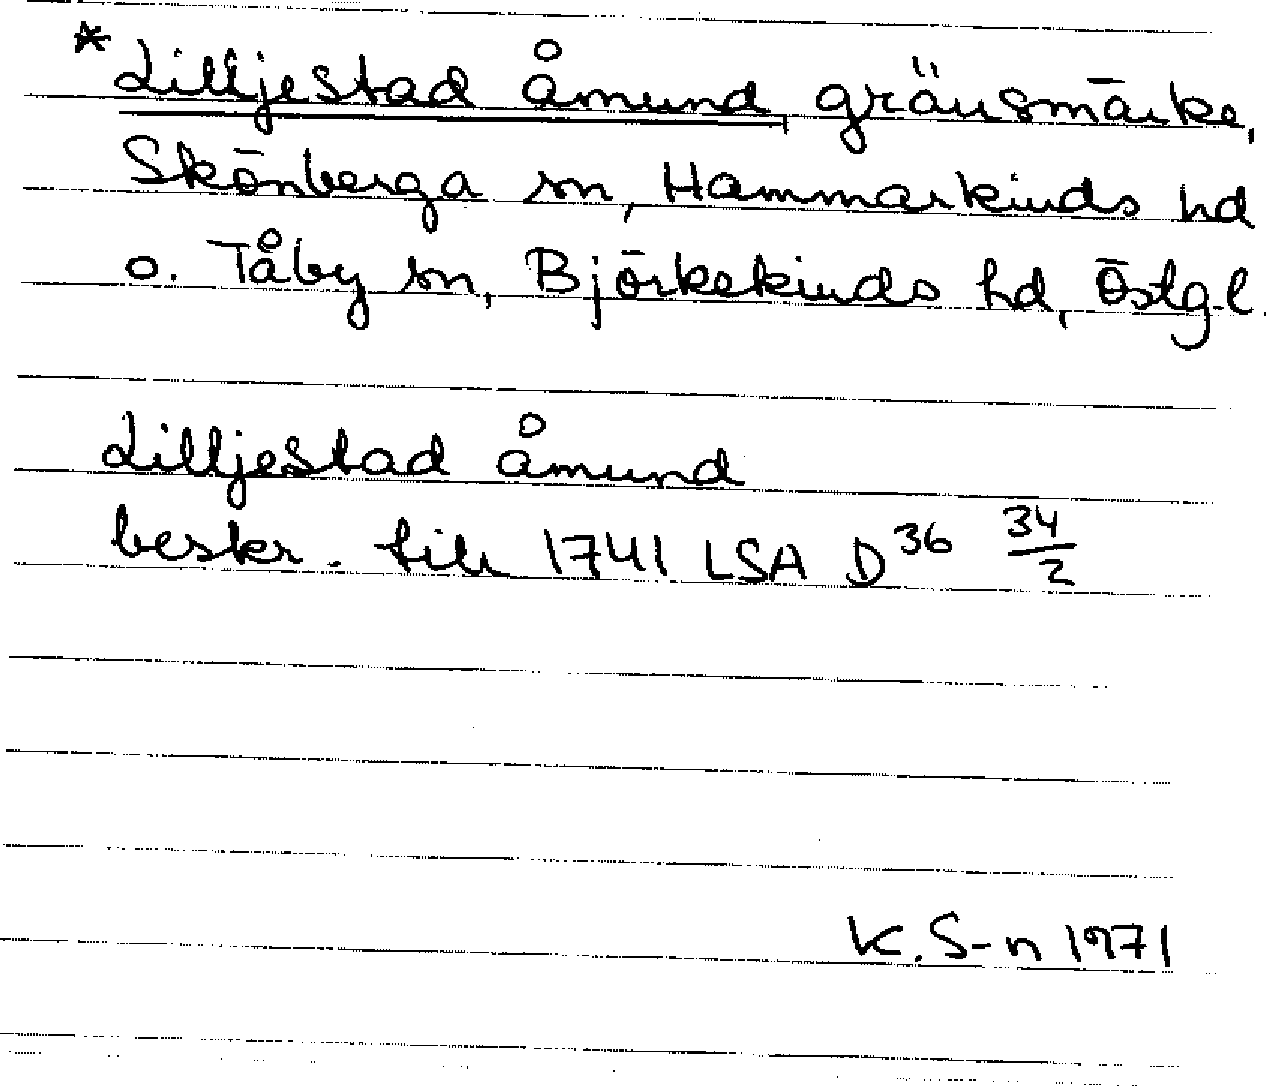 *Lilljestad åmund, gränsmärke,
Skönberga sn, Hammarkinds hd
o. Tåby sn, Björkekinds hd, Östg.l.
Lilljestad åmund
beskr. till 1741 LSA D36 34/2
K. S-n 1971